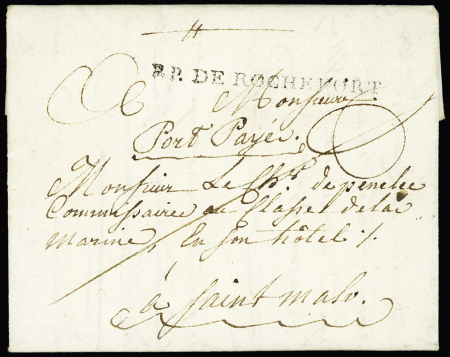 P.P. DE ROCHEFORT
Monsieur
Port Payé.
Monsieur Le Ch.er de penelee
Commissaire au Classe de la
marine, En son hôtel /.
à Saint malo.